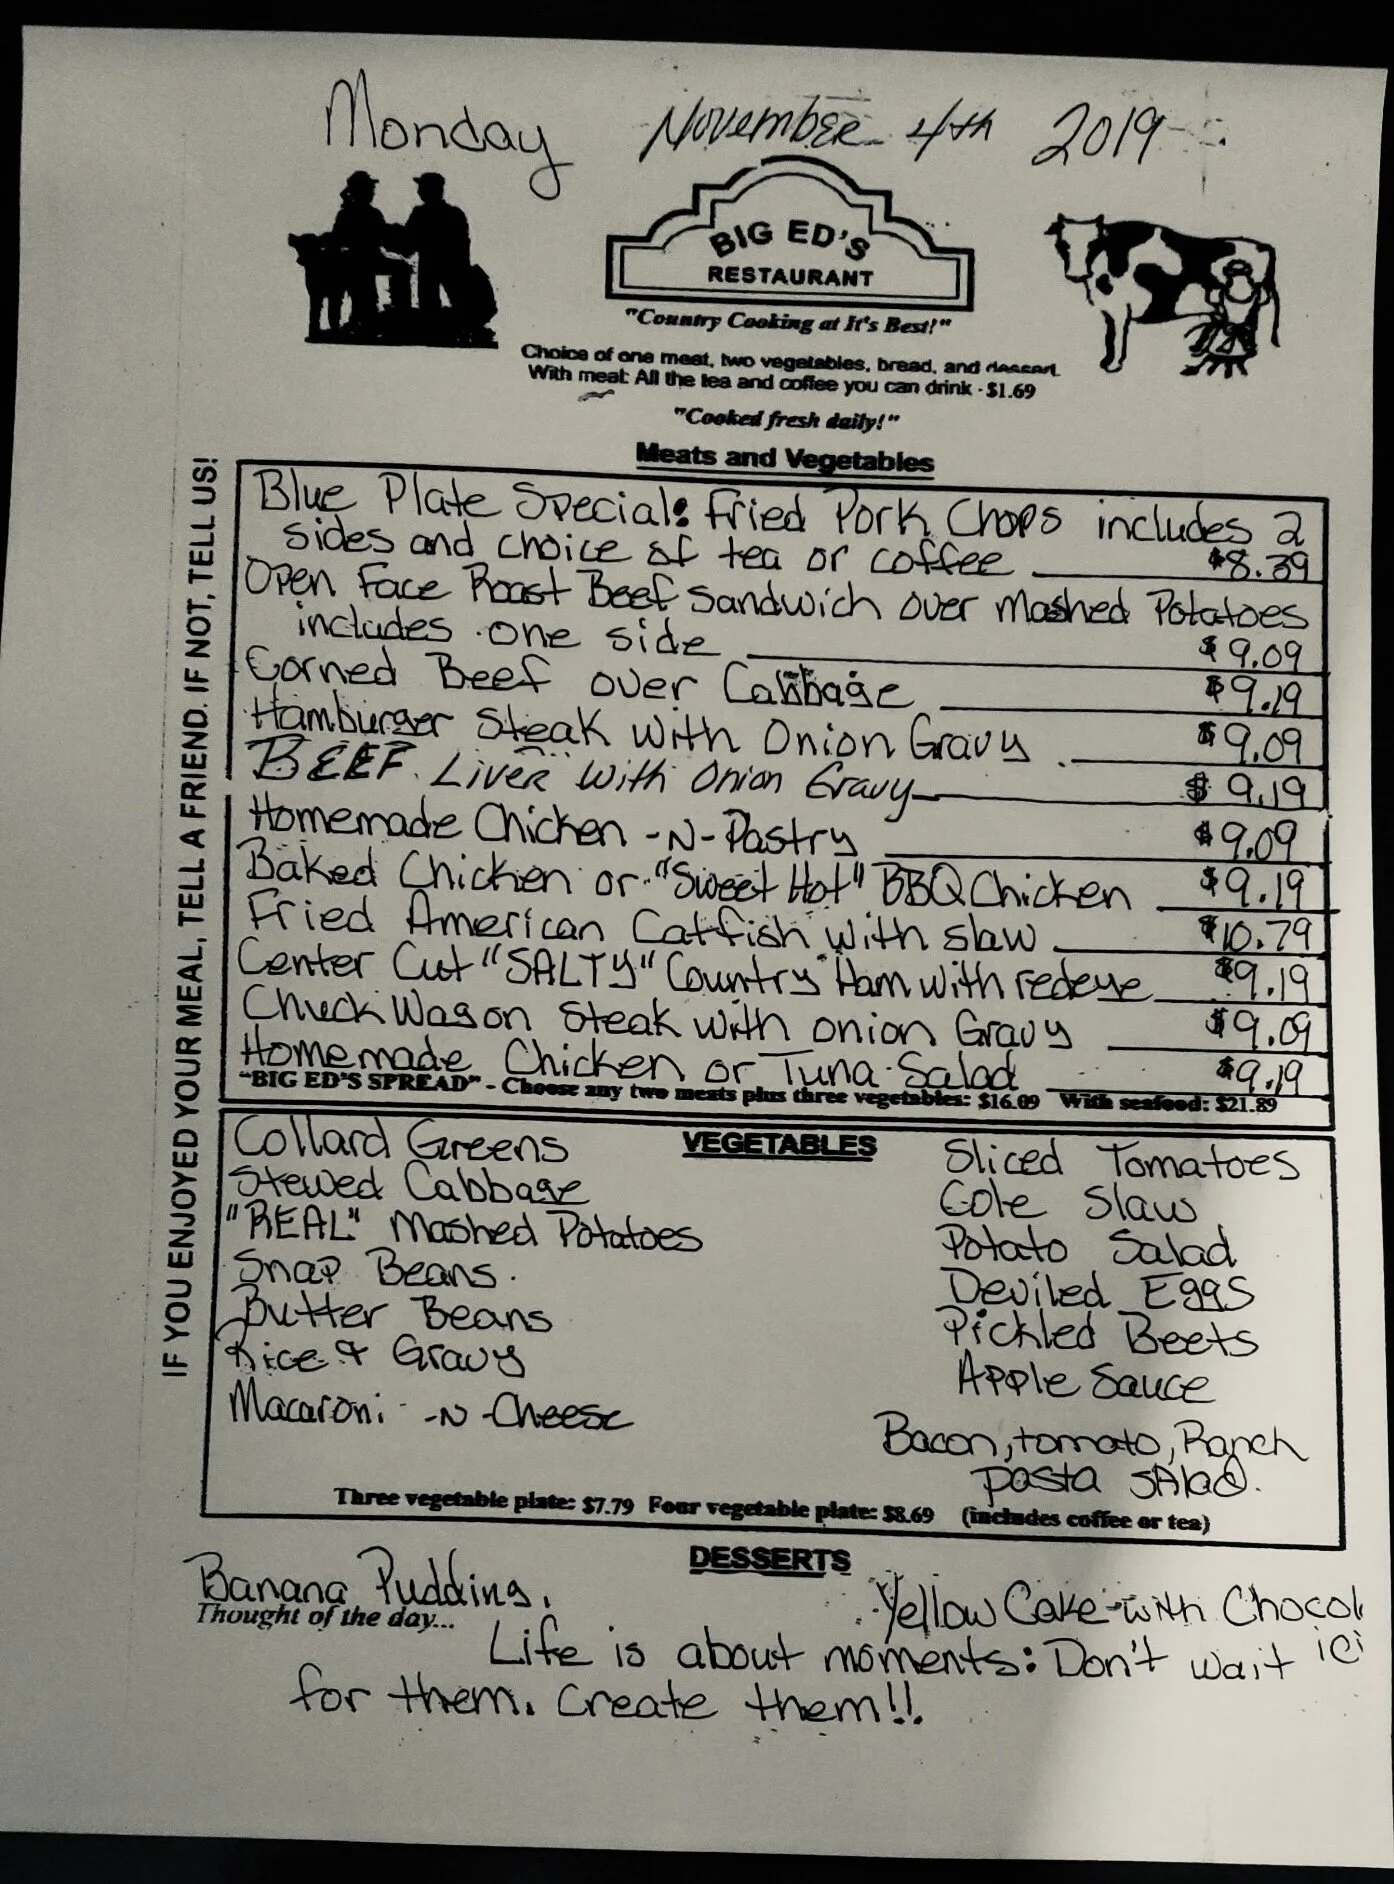 Monday November 4th 2019
BIG ED'S
RESTAURANT
"Country Cooking at It's Best!"
Choice of one meat, two vegetables, bread, and dessert.
With meal: All the tea and coffee you can drink - $1.69
"Cooked fresh daily!"
Meats and Vegetables
IF YOU ENJOYED YOUR MEAL, TELL A FRIEND. IF NOT, TELL US!
Blue Plate Special: Fried Pork Chops includes 2
sides and choice of tea or coffee $8.39
Open Face Roast Beef Sandwich over Mashed Potatoes
includes one side $9.09
Corned Beef over Cabbage $9.19
Hamburger Steak with Onion Gravy $9.09
BEEF Liver with Onion Gravy $9.19
Homemade Chicken -N- Pastry $9.09
Baked Chicken or "Sweet Hot" BBQ Chicken $9.19
Fried American Catfish with slaw $10.79
Center Cut "SALTY" Country Ham with redeye $9.19
Chuck Wagon Steak with onion Gravy $9.09
Homemade Chicken or Tuna Salad $9.19
"BIG ED'S SPREAD" - Choose any two meats plus three vegetables: $16.09 With seafood: $21.89
VEGETABLES
Collard Greens
Stewed Cabbage
"REAL" Mashed Potatoes
Snap Beans
Butter Beans
Rice & Gravy
Macaroni -N- Cheese
Sliced Tomatoes
Cole Slaw
Potato Salad
Deviled Eggs
Pickled Beets
Apple Sauce
Bacon, tomato, Ranch
pasta sAlad.
Three vegetable plate: $7.79 Four vegetable plate: $8.69 (includes coffee or tea)
DESSERTS
Banana Pudding. Yellow Cake with Chocol
ici
Thought of the day...
Life is about moments: Don't wait
for them. Create them!!